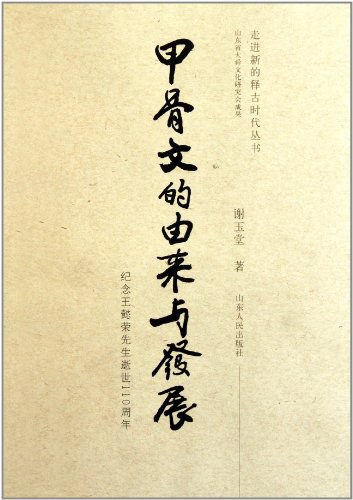 走进新的释古时代丛书
山东省大舜文化研究会成果
谢玉堂 著
山东人民出版社
甲骨文的由来与發展
纪念王懿荣先生逝世110周年